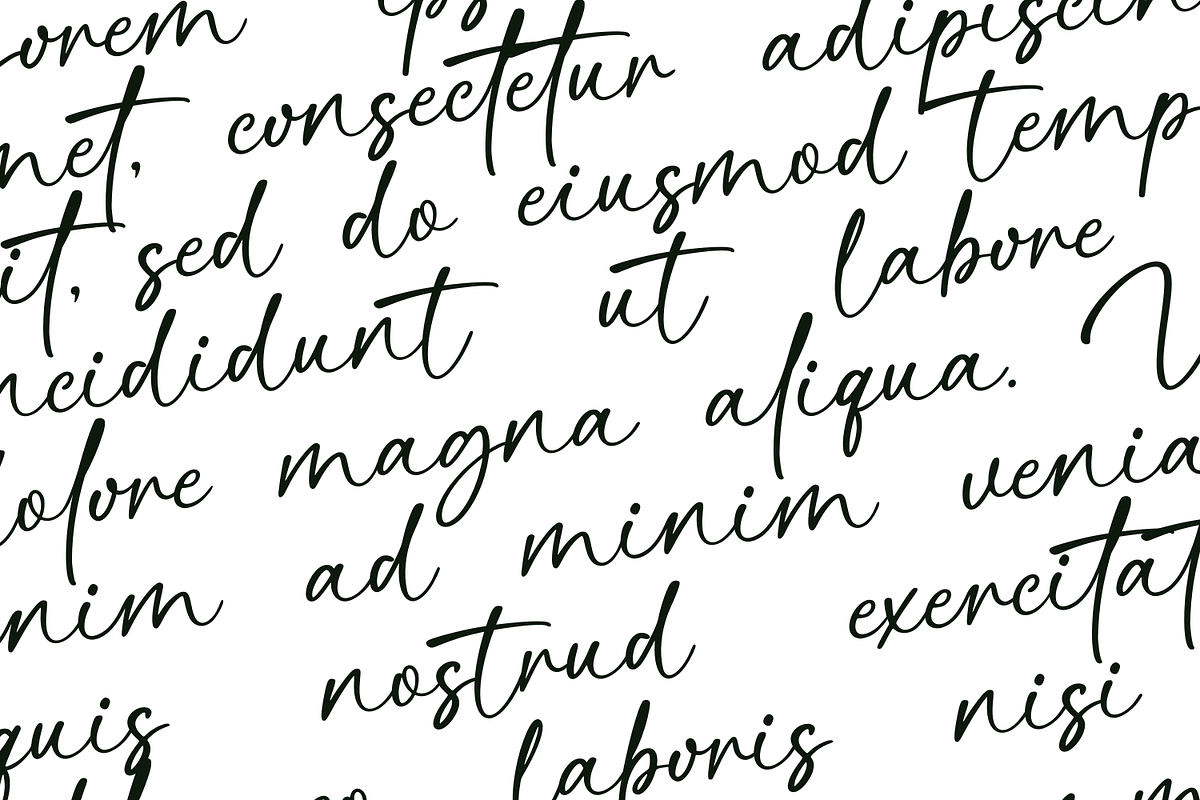 orem
net, consectetur adipiscin
it, sed do eiusmod temp
ncididunt ut labore
dolore magna aliqua.
nim ad minim venia
quis nostrud exercitat
laboris nisi